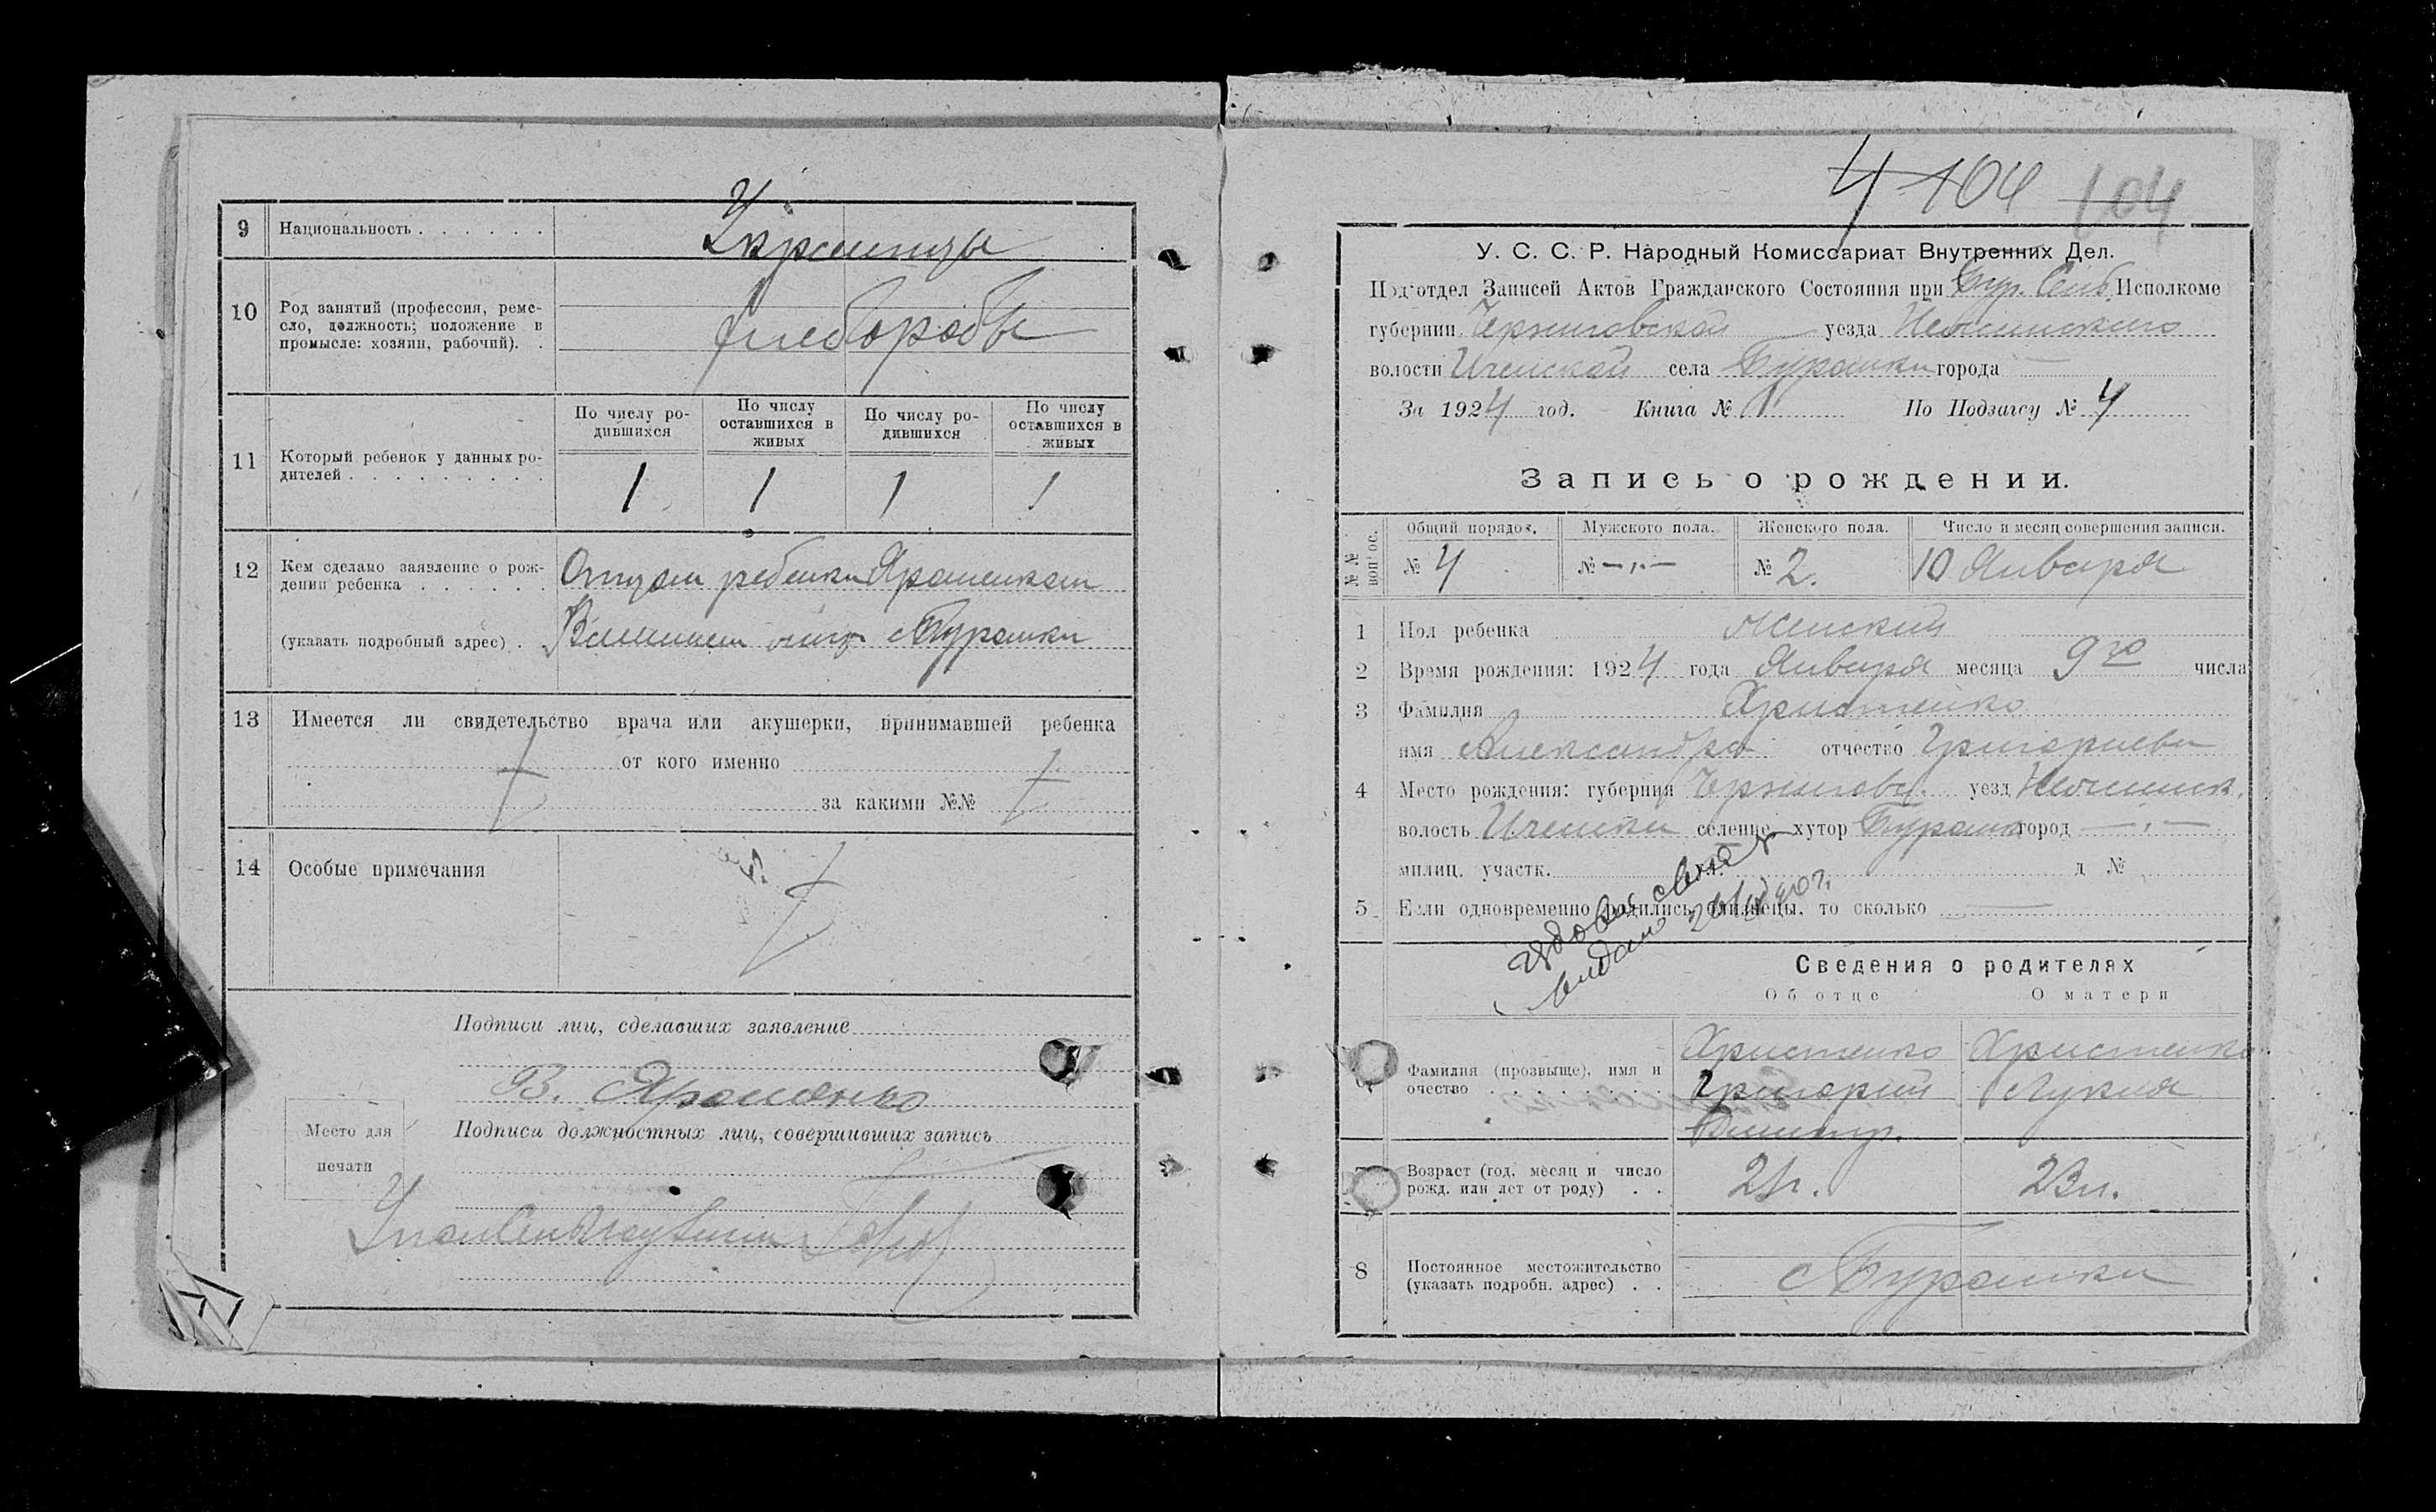 9 Национальность . . . . . . Украинцы
10 Род занятий (профессия, реме-
сло, должность; положение в
промысле: хозяин, рабочий). . хлеборобы
11 Который ребенок у данных ро-
дителей . . . . . . . . .
По числу ро-
дившихся
По числу
оставшихся в
живых
По числу ро-
дившихся
По числу
оставшихся в
живых
1 1 1 1
12 Кем сделано заявление о рож-
дении ребенка . . . . . . Отцом ребенка Ярошенком
(указать подробный адрес) . Бурошки
13 Имеется ли свидетельство врача или акушерки, принимавшей ребенка
от кого именно
за какими №№
14 Особые примечания
Подписи лиц, сделавших заявление
В. Ярошенко
Подписи должностных лиц, совершивших запись
Место для
печати
4 104 104
У. С. С. Р. Народный Комиссариат Внутренних Дел.
Под'отдел Записей Актов Гражданского Состояния при Бур. Исполкоме
губернии Черниговской уезда Нежинского
волости Иченской села Бурошки города —
За 1924 год. Книга № 1 По Подзагсу № 4
Запись о рождении.
№№ вопрос. Общий порядов. Мужского пола. Женского пола. Число и месяц совершения записи.
№ 4 № —"— № 2. 10 Января
1 Пол ребенка Женский
2 Время рождения: 1924 года Января месяца 9го числа
3 Фамилия Христенко
имя Александра отчество Григориева
4 Место рождения: губерния Чернигов. уезд Нежинск.
волость Иченска селение хутор Бурошки город —"—
милиц. участк. ул. д №
5 Если одновременно родились близнецы, то сколько —
Сведения о родителях
Об отце О матери
6 Фамилия (прозвыще), имя и
очество . . . . . . . . .
Христенко Христенко
Григорий Лукия
Димитр.
7 Возраст (год, месяц и число
рожд. или лет от роду) . . 21г. 23л.
8 Постоянное местожительство
(указать подробн. адрес) . . с Бурошки